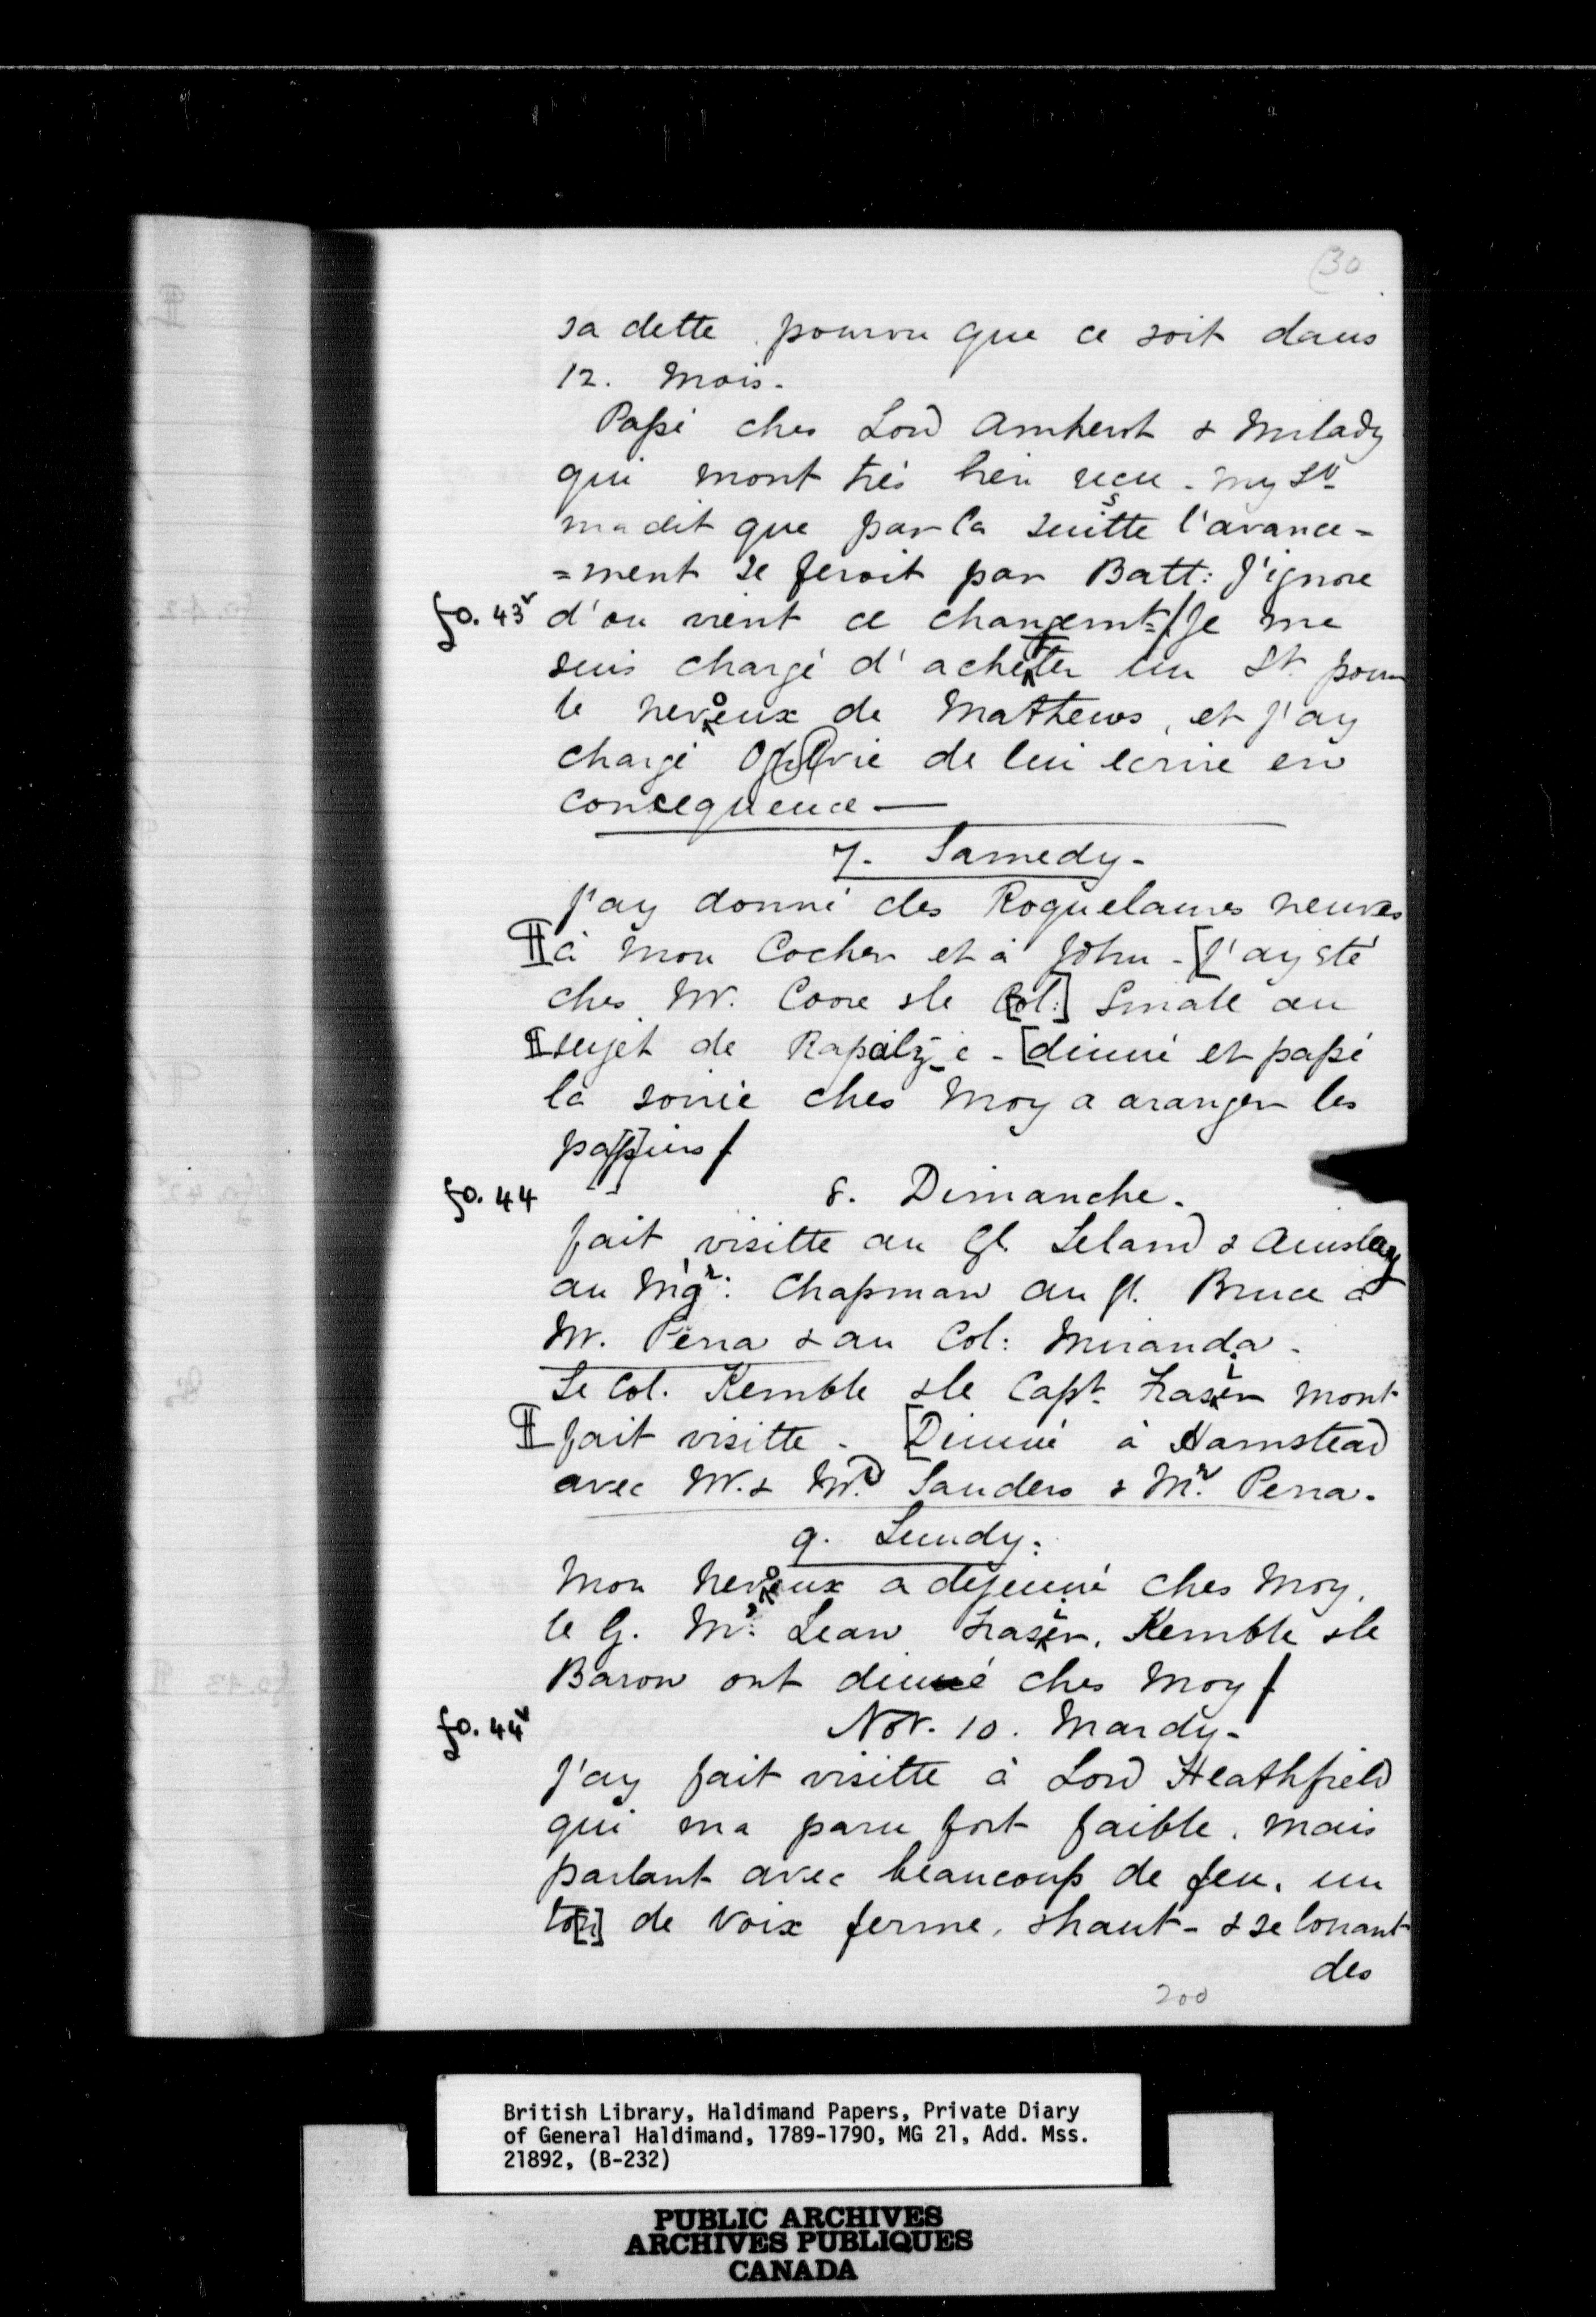 30
sa dette pourvu que ce soit dans
12. Mois.
Passé ches Lord Amherst & Milady
qui mont très bien reçu. My Ld
ma dit que par la suitte l'avance=
=ment se feroit par Batt: J'ignore
fo. 43v d'ou vient ce changemt:/Je me
suis chargé d'achetter un Lt. pour
le neveoux de Mathews, et j'ay
chargé Ogilvie de lui ecrire en
concequence —
7. Samedy.
J'ay donné des Roquelaures neuves
à mon Cocher et à John. [J'ay été
ches Mr. Coore & le Col:] Smale au
sujet de Rapalz_e. [dinné et passé
la soirée ches Moy a aranger les
pa[p]iers/
fo. 44 8. Dimanche.
fait visitte au Gl. Leland & Ainslay
au Mgr: Chapman au Gl. Bruce à
Mr. Pena & au Col: Miranda.
Le Col. Kemble & le Capt. Frasier mont
fait visitte. [Dinné à Hamstead
avec Mr. & Md Sanders & Mr. Pena.
9. Lundy.
Mon neveoux a dejeuné ches Moy,
le G. Mc: Lean Frasier, Kemble & le
Baron ont dinné ches Moy/
fo. 44v Nov. 10. Mardy.
J'ay fait visitte à Lord Heathfield
qui ma paru fort faible, mais
parlant avec beaucoup de feu, un
to[n] de voix ferme, & haut - & se louant
des
200
British Library, Haldimand Papers, Private Diary
of General Haldimand, 1789-1790, MG 21, Add. Mss.
21892, (B-232)
PUBLIC ARCHIVES
ARCHIVES PUBLIQUES
CANADA